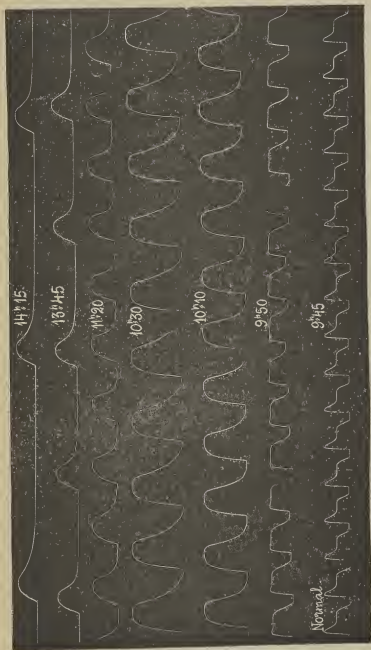 14ʰ15
13ʰ45
11ʰ20
10ʰ30
10ʰ10
9ʰ50
9ʰ45
Normal